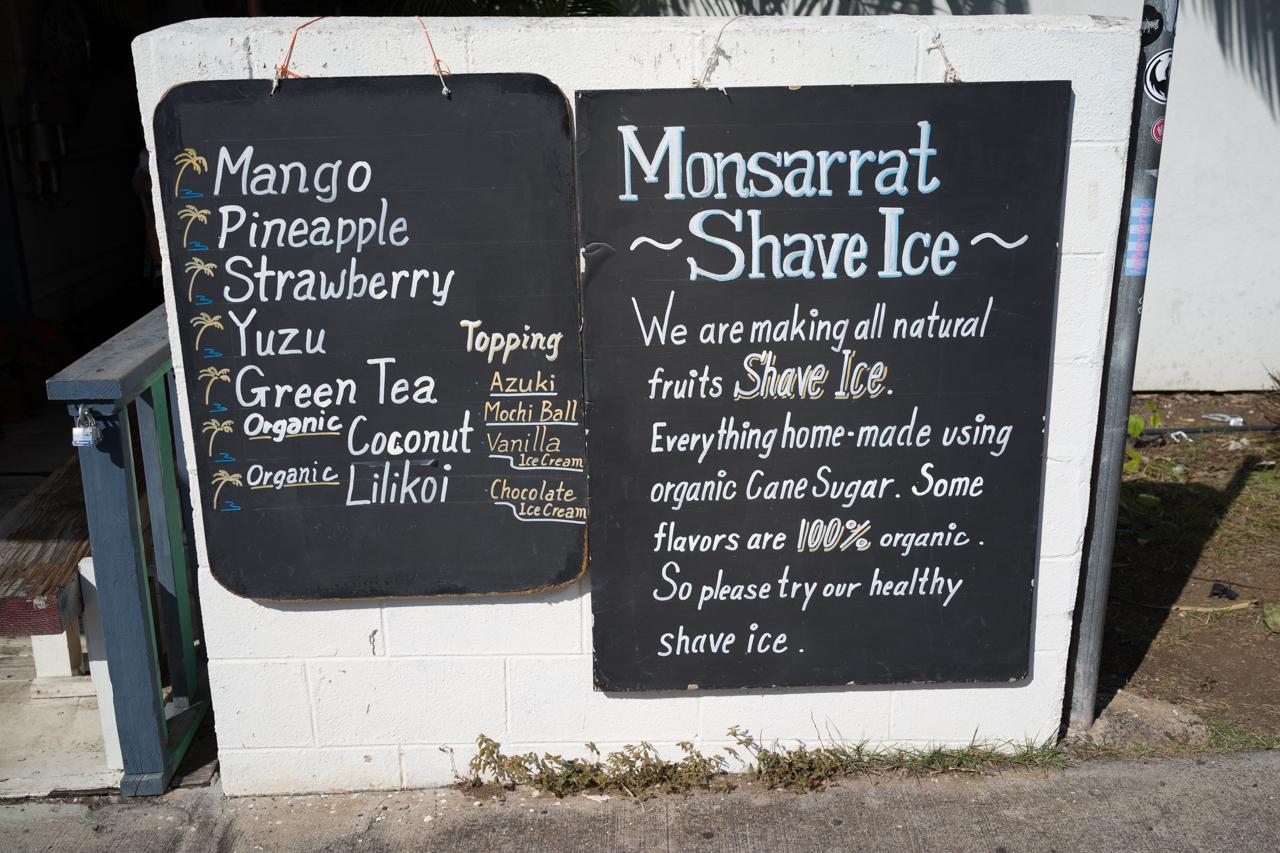 Mango
Pineapple
Strawberry
Yuzu
Green Tea
Organic Coconut
Organic Lilikoi
Topping
Azuki
Mochi Ball
Vanilla
Ice Cream
Chocolate
Ice Cream
Monsarrat
~Shave Ice~
We are making all natural
fruits Shave Ice.
Everything home-made using
organic Cane Sugar. Some
flavors are 100% organic.
So please try our healthy
shave ice.